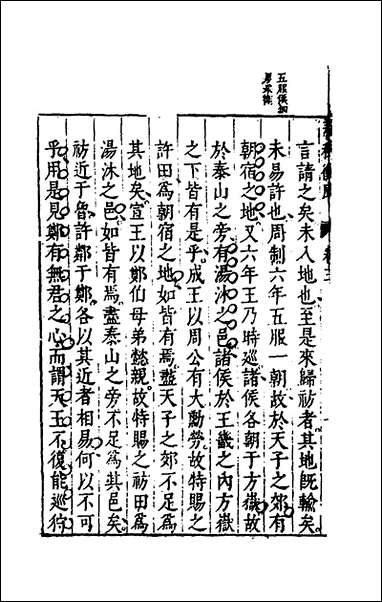 五服侯甸
男采衛
卷三
言請之矣未入地也至是來歸祊者其地既輸矣
未易許也周制六年五服一朝故於天子之郊有
朝宿之地又六年王乃時巡諸侯各朝于方嶽故
於泰山之旁有湯沐之邑諸侯於王畿之内方嶽
之下皆有是乎成王以周公有大勳勞故特賜之
許田為朝宿之地如皆有焉盡天子之郊不足為
其地矣宣王以鄭伯母弟懿親故特賜之祊田為
湯沐之邑如皆有焉盡泰山之旁不足為其邑矣
祊近于魯許鄰于鄭各以其近者相易何以不可
乎用是見鄭有無君之心而謂天王不復能巡狩